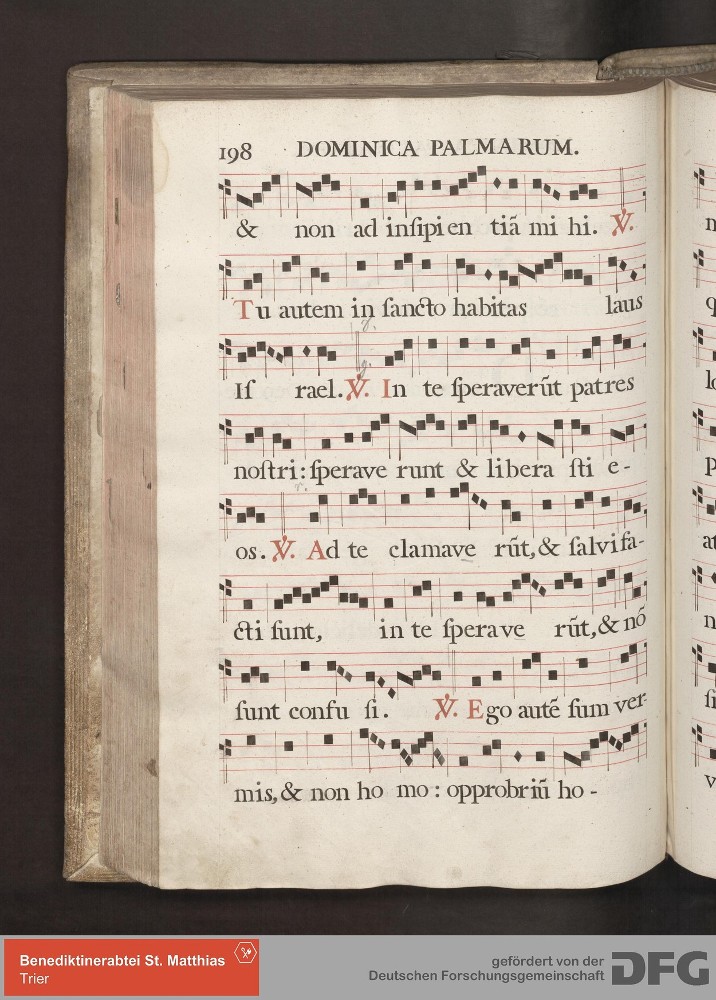 198 DOMINICA PALMARUM.
& non ad inſipi en tiã mi hi. ℣.
Tu autem in ſancto habitas laus
Iſ rael. ℣. In te ſperaverũt patres
noſtri: ſperave runt & libera ſti e-
os. ℣. Ad te clamave rũt, & ſalvi fa-
cti ſunt, in te ſperave rũt, & nõ
ſunt confu ſi. ℣. Ego autẽ ſum ver-
mis, & non ho mo: opprobriũ ho-
Benediktinerabtei St. Matthias
Trier
gefördert von der
Deutschen Forschungsgemeinschaft
DFG